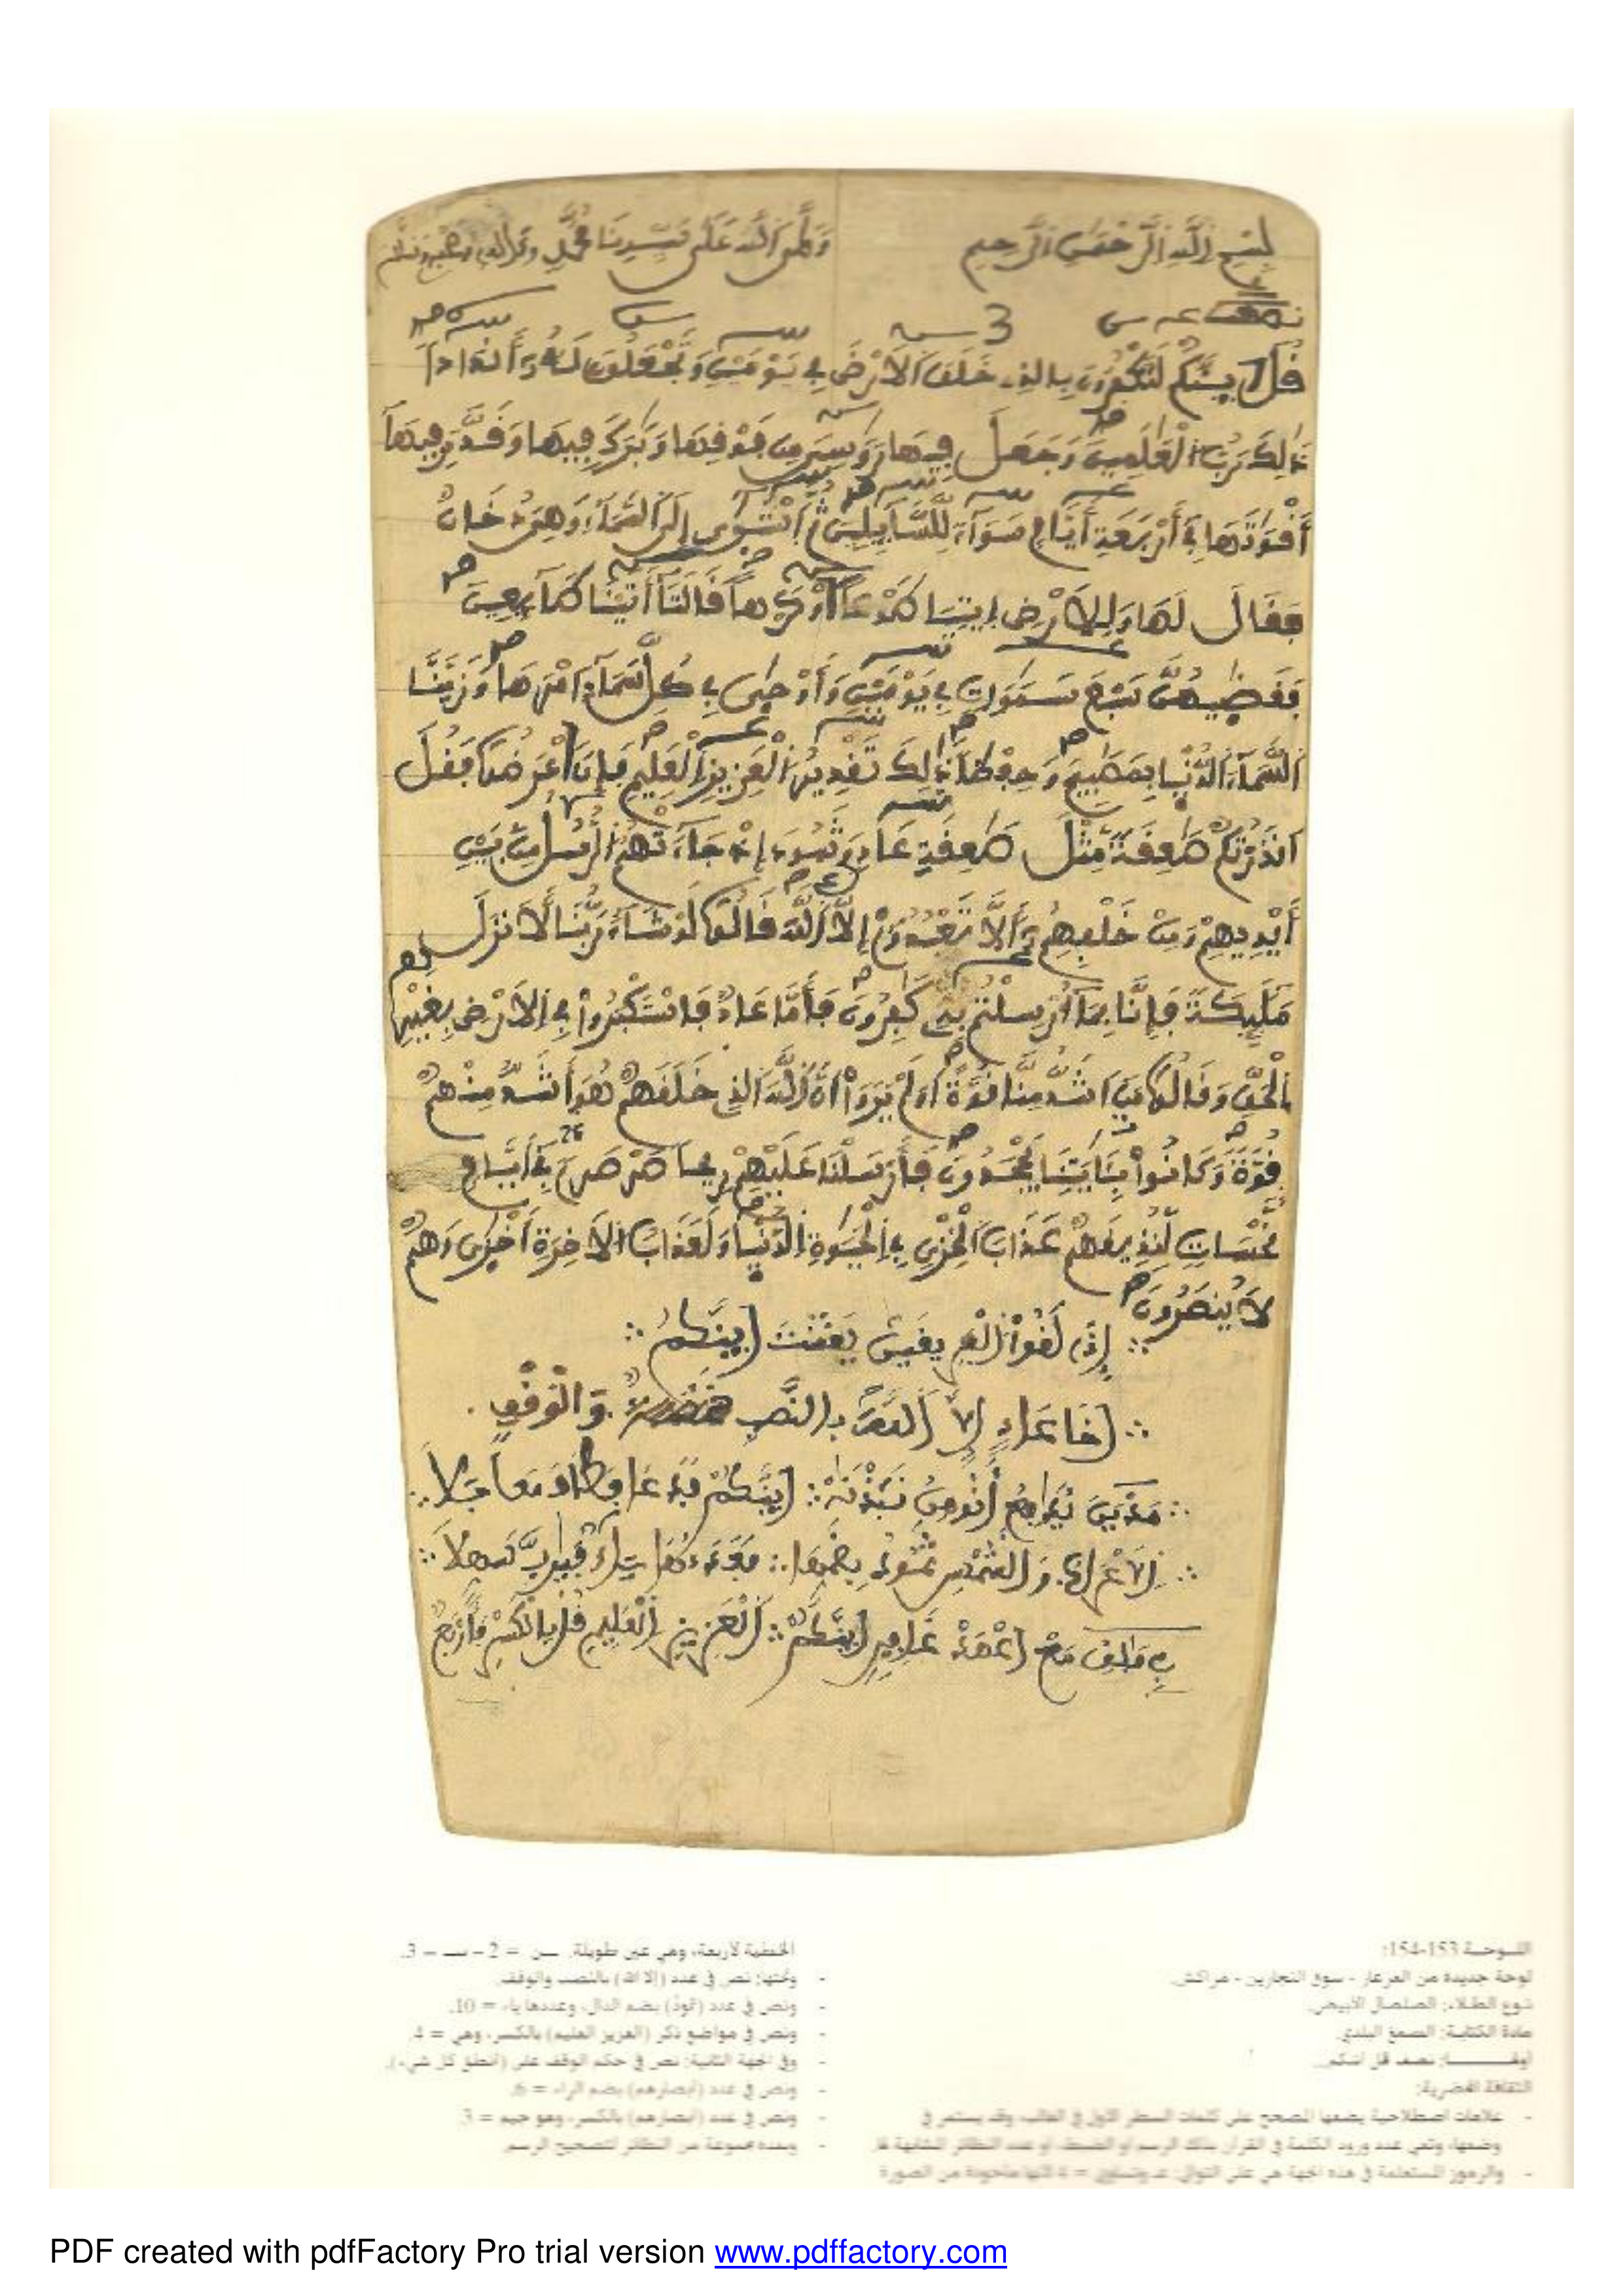 بسم الله الرحمن الرحيم وصلى الله على سيدنا محمد وءاله وصحبه وسلم
نصف
3
قُلَ اَينَّكُمْ لَتَكْفُرُونَ بِالذِے خَلَقَ اَلَارْضَ فِے يَوْمَيْنِ وَتَجْعَلُونَ لَهُۥٓ أَندَاداٗ
ذَٰلِكَ رَبُّ اُلْعَٰلَمِينَ وَجَعَلَ فِيهَا رَوَٰسِيَ مِن فَوْقِهَا وَبَٰرَكَ فِيهَا وَقَدَّرَ فِيهَآ
أَقْوَٰتَهَا فِےٓ أَرْبَعَةِ أَيَّامٖ سَوَآءٗ لِّلسَّآئِلِينَ ثُمَّ اَسْتَوَىٰٓ إِلَى اَلسَّمَآءِ وَهِيَ دُخَانٞ
فَقَالَ لَهَا وَلِلَارْضِ اِيتِيَا طَوْعاً اَوْ كَرْهاٗ قَالَتَآ أَتَيْنَا طَآئِعِينَ
فَقَضَيٰهُنَّ سَبْعَ سَمَٰوَاتٖ فِے يَوْمَيْنِ وَأَوْحَىٰ فِے كُلِّ سَمَآءٍ اَمْرَهَا وَزَيَّنَّا
اَلسَّمَآءَ اَلدُّنْيَا بِمَصَٰبِيحَ وَحِفْظاٗ ذَٰلِكَ تَقْدِيرُ اُلْعَزِيزِ اِلْعَلِيمِ فَإِنَ اَعْرَضُواْ فَقُلَ
اَنذَرْتُكُمْ صَٰعِقَةٗ مِّثْلَ صَٰعِقَةِ عَادٖ وَثَمُودَ إِذْ جَآءَتْهُمُ اُلرُّسُلُ مِنۢ بَيْنِ
أَيْدِيهِمْ وَمِنْ خَلْفِهِمُۥٓ أَلَّا تَعْبُدُوٓاْ إِلَّا اَللَّهَ قَالُواْ لَوْ شَآءَ رَبُّنَا لَأَنزَلَ
مَلَٰٓئِكَةٗ فَإِنَّا بِمَآ أُرْسِلْتُم بِهِۦ كَٰفِرُونَ فَأَمَّا عَادٞ فَاسْتَكْبَرُواْ فِے اِلَارْضِ بِغَيْرِ
اِلْحَقِّ وَقَالُواْ مَنَ اَشَدُّ مِنَّا قُوَّةً اَوَلَمْ يَرَوَاْ اَنَّ اَللَّهَ اَلذِے خَلَقَهُمْ هُوَ أَشَدُّ مِنْهُمْ
قُوَّةٗ وَكَانُواْ بِـَٔايَٰتِنَا يَجْحَدُونَ فَأَرْسَلْنَا عَلَيْهِمْ رِيحاٗ صَرْصَراٗ فِےٓ أَيَّامٖ
نَّحْسَاتٖ لِّنُذِيقَهُمْ عَذَابَ اَلْخِزْيِ فِے اِلْحَيَوٰةِ اِلدُّنْيَا وَلَعَذَابُ اُلَاخِرَةِ أَخْزَىٰ وَهُمْ
لَا يُنصَرُونَ
أينكم
إلا الله بالنصب والوقف
أينكم
أينكم العزيز العليم قل بالكسر فأربع
اللوحة 153-154:
لوحة جديدة من العرعار - سوق النجارين - مراكش.
نوع الطلاء: الصلصال الأبيض.
مادة الكتابة: الصمغ البلدي.
نصف قل أئنكم
- علامات اصطلاحية يضعها المصحح على كلمات السطر الأول في الغالب، وقد يستمر في
وضعها، وتعني عدد ورود الكلمة في القرآن بذلك الرسم أو الضبط، أو عدد النظائر المشابهة لها.
- والرموز المستعملة في هذه الجهة هي على التوالي: عـ وتساوي = 4 لأنها مأخوذة من الصورة
الخطية لأربعة، وهي عين طويلة. ســن = 2 – ســ – 3.
- وتحتها: نص في عدد (إلا الله) بالنصب والوقف.
- ونص في عدد بضم الدال، وعددها ياء = 10.
- ونص في مواضع ذكر (العزيز العليم) بالكسر، وهي = 4.
- وفي الجهة الثانية: نص في حكم الوقف على (أنطق كل شيء).
- ونص في عدد (أبصارهم) بضم الراء = 6.
- ونص في عدد (أبصارهم) بالكسر، وهو جيم = 3.
- وبعده مجموعة من النظائر لتصحيح الرسم.
PDF created with pdfFactory Pro trial version www.pdffactory.com